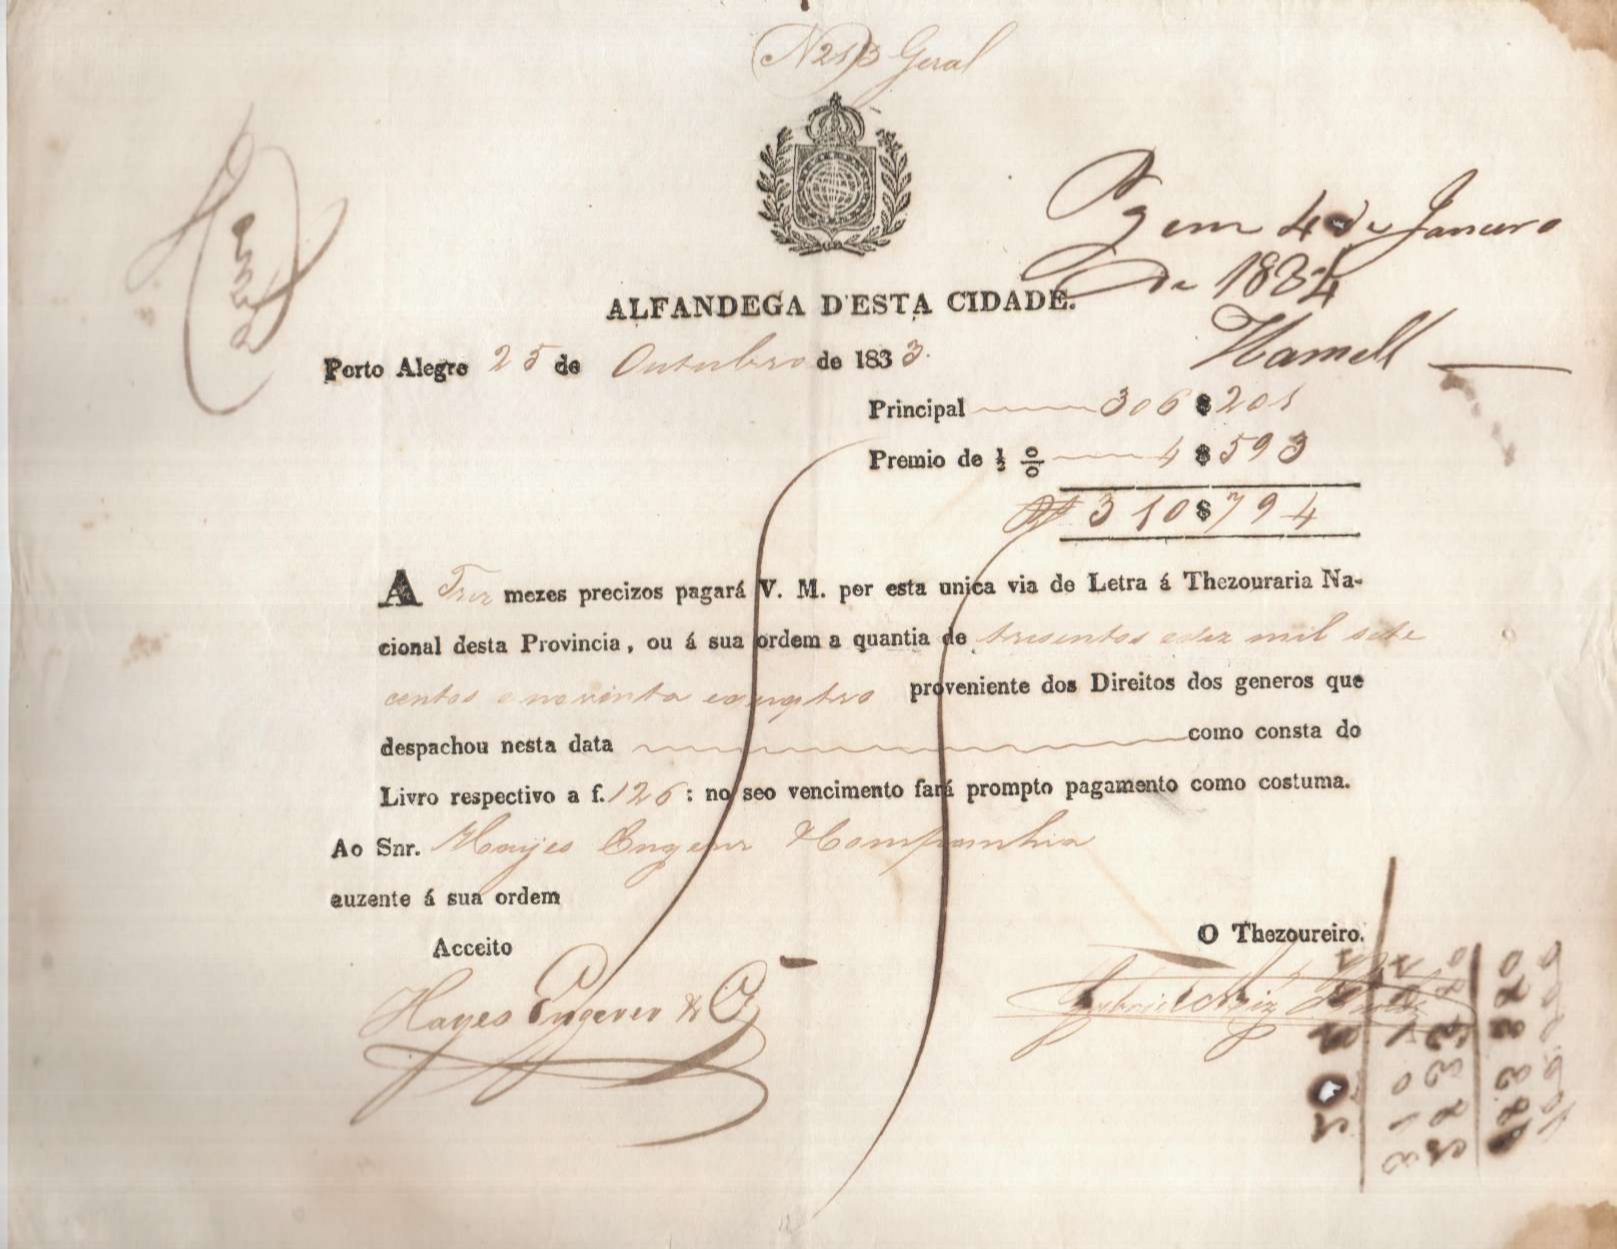 Geral
Pg em 4 de Janeiro
de 1834
Hamell
ALFANDEGA D'ESTA CIDADE.
Porto Alegre 25 de Outubro de 1833.
Principal 306$201
Premio de ½ 0/0 4$593
310$794
A Trez mezes precizos pagará V. M. por esta unica via de Letra á Thezouraria Na-
cional desta Provincia, ou á sua ordem a quantia de tresentos e dez mil sete
centos e noventa e quatro proveniente dos Direitos dos generos que
despachou nesta data como consta do
Livro respectivo a f. 126 : no seo vencimento fará prompto pagamento como costuma.
Ao Snr. Hayes Engerer & Companhia
auzente á sua ordem
Acceito
O Thezoureiro.
Hayes Engerer & Ca